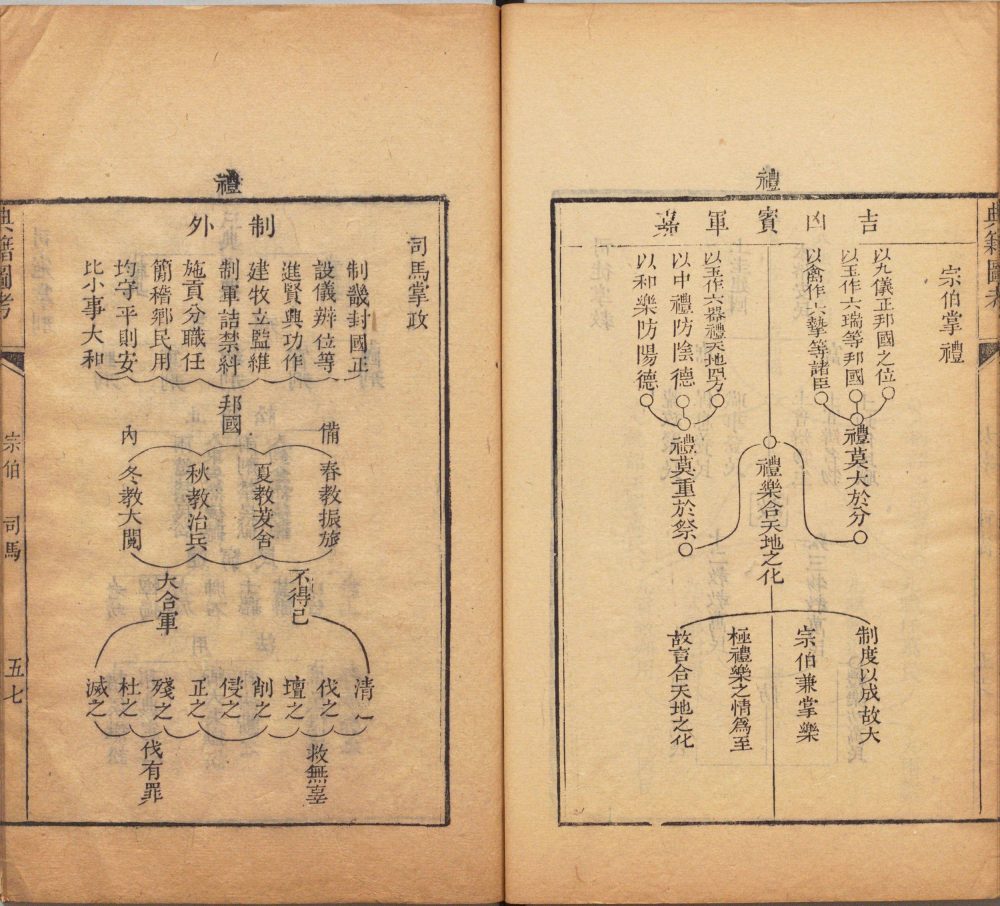 禮
典籍圖考
宗伯掌禮
吉凶賓軍嘉
以九儀正邦國之位
以玉作六瑞等邦國
以禽作六摯等諸臣
以玉作六器禮天地四方
以中禮防陰德
以和樂防陽德
禮莫大於分
禮莫重於祭
禮樂合天地之化
制度以成故大
宗伯兼掌樂
極禮樂之情爲至
故言合天地之化
禮
司馬掌政
制外
制畿封國正
設儀辨位等
進賢興功作
建牧立監維
制軍詰禁糾
施貢分職任
簡稽鄉民用
均守平則安
比小事大和
邦國
備內
春教振旅
夏教茇舍
秋教治兵
冬教大閱
不得已
大合軍
清之
伐之
壇之
削之
侵之
正之
殘之
杜之
滅之
救無辜
伐有罪
典籍圖考
宗伯 司馬
五七